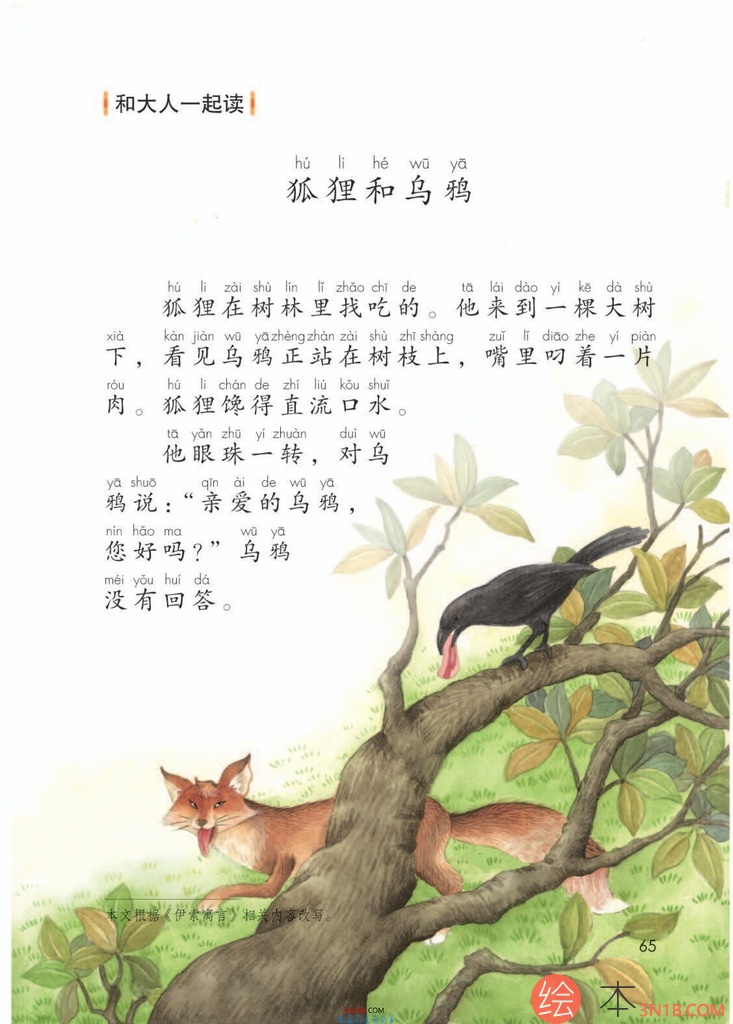 和大人一起读
hú li hé wū yā
狐狸和乌鸦
hú li zài shù lín lǐ zhǎo chī de tā lái dào yì kē dà shù
狐狸在树林里找吃的。他来到一棵大树
xià kàn jiàn wū yā zhèng zhàn zài shù zhī shàng zuǐ lǐ diāo zhe yí piàn
下，看见乌鸦正站在树枝上，嘴里叼着一片
ròu hú li chán de zhí liú kǒu shuǐ
肉。狐狸馋得直流口水。
tā yǎn zhū yí zhuàn duì wū
他眼珠一转，对乌
yā shuō qīn ài de wū yā
鸦说：“亲爱的乌鸦，
nín hǎo ma wū yā
您好吗？”乌鸦
méi yǒu huí dá
没有回答。
本文根据《伊索寓言》相关内容改写。
65
绘本 3N1B.COM